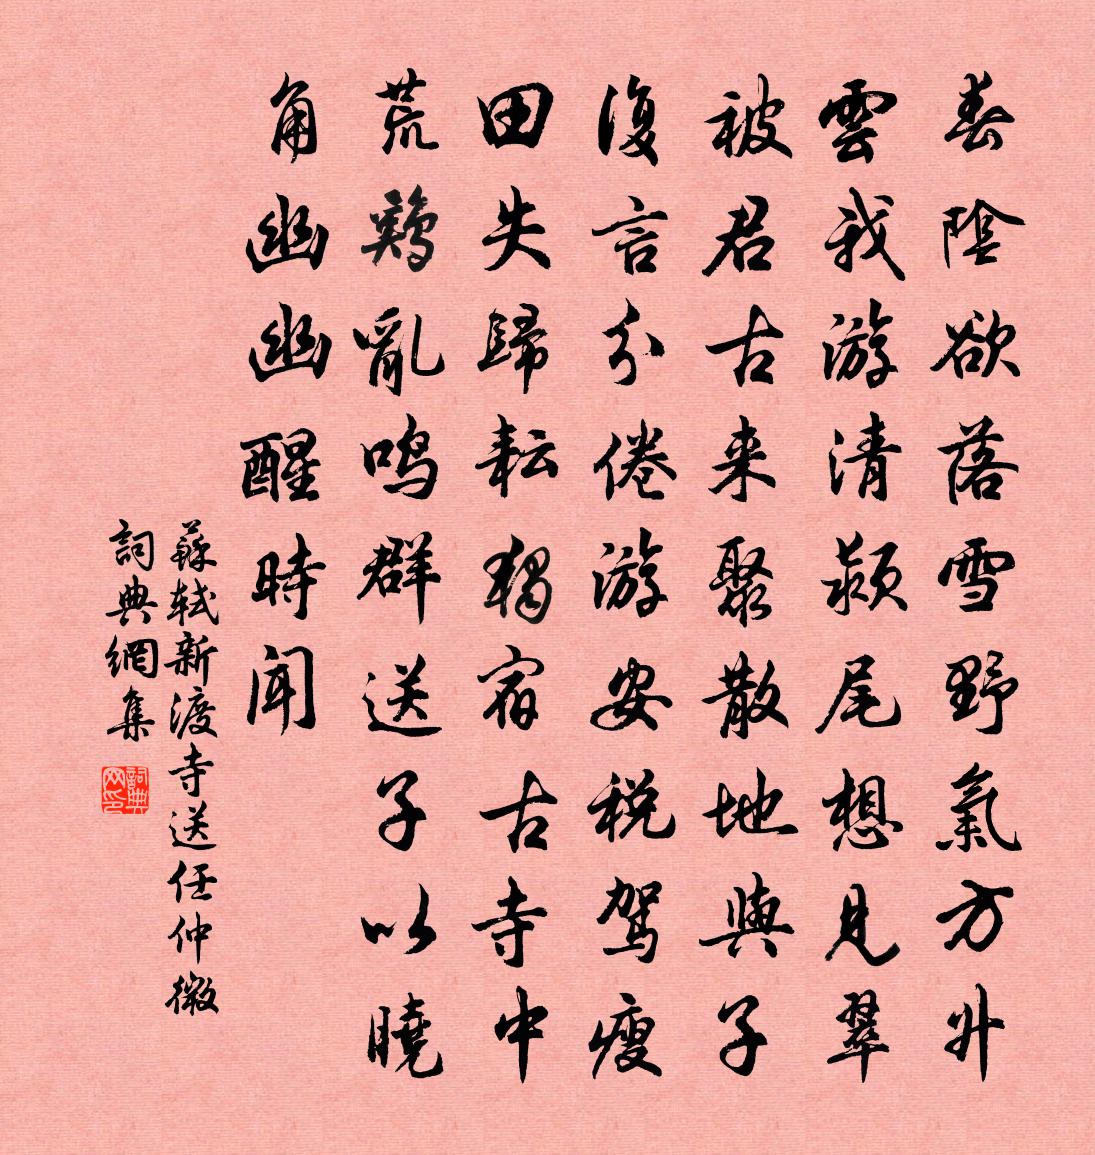 春陰欲落雪野氣方升
雲我游清潁尾想見翠
被君古来聚散地與子
復言分倦游安税駕瘦
田失歸耘獨宿古寺中
荒鷄亂鳴群送子以曉
角幽幽醒時聞
蘇軾新渡寺送任仲微
詞典網集
詞典网印